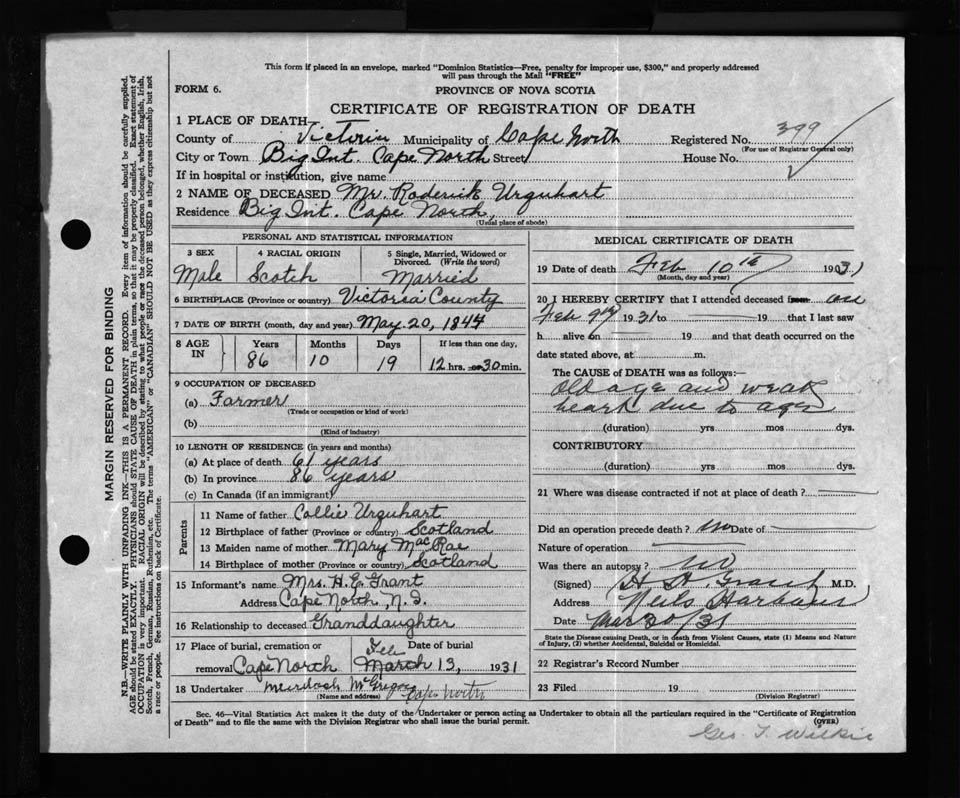 This form if placed in an envelope, marked "Dominion Statistics—Free, penalty for improper use, $300," and properly addressed
will pass through the Mail "FREE"
FORM 6. PROVINCE OF NOVA SCOTIA
CERTIFICATE OF REGISTRATION OF DEATH
1 PLACE OF DEATH
County of Victoria Municipality of Cape North Registered No. 399
(For use of Registrar General only)
City or Town Big Int. Cape North Street House No.
If in hospital or institution, give name
2 NAME OF DECEASED Mr. Roderick Urquhart
Residence Big Int. Cape North,
(Usual place of abode)
PERSONAL AND STATISTICAL INFORMATION
3 SEX 4 RACIAL ORIGIN 5 Single, Married, Widowed or Divorced. (Write the word)
Male Scotch Married
6 BIRTHPLACE (Province or country) Victoria County
7 DATE OF BIRTH (month, day and year) May 20, 1844
8 AGE IN Years Months Days If less than one day,
86 10 19 12 hrs. or 30 min.
9 OCCUPATION OF DECEASED
(a) Farmer
(Trade or occupation or kind of work)
(b)
(Kind of industry)
10 LENGTH OF RESIDENCE (in years and months)
(a) At place of death 61 years
(b) In province 86 years
(c) In Canada (if an immigrant)
Parents
11 Name of father Collie Urquhart
12 Birthplace of father (Province or country) Scotland
13 Maiden name of mother Mary MacRae
14 Birthplace of mother (Province or country) Scotland
15 Informant's name Mrs. H. E. Grant
Address Cape North, N. S.
16 Relationship to deceased Granddaughter
17 Place of burial, cremation or removal Cape North Date of burial Feb March 13, 1931
18 Undertaker Murdoch McGregor Cape North
(Name and address)
MEDICAL CERTIFICATE OF DEATH
19 Date of death Feb 10th 1931
(Month, day and year)
20 I HEREBY CERTIFY that I attended deceased from on
Feb 9th 1931 to 19 that I last saw
h alive on 19 and that death occurred on the
date stated above, at m.
The CAUSE of DEATH was as follows:—
Old age and weak
heart due to age
(duration) yrs mos dys.
CONTRIBUTORY
(duration) yrs mos dys.
21 Where was disease contracted if not at place of death?
Did an operation precede death? no Date of
Nature of operation
Was there an autopsy? no
(Signed) H H Grant M.D.
Address Neils Harbour
Date Mar 20/31
State the Disease causing Death, or in death from Violent Causes, state (1) Means and Nature
of Injury, (2) whether Accidental, Suicidal or Homicidal.
22 Registrar's Record Number
23 Filed 19
(Division Registrar)
Sec. 46—Vital Statistics Act makes it the duty of the Undertaker or person acting as Undertaker to obtain all the particulars required in the "Certificate of Registration
of Death" and to file the same with the Division Registrar who shall issue the burial permit. (OVER)
Geo. T. Wilkie
MARGIN RESERVED FOR BINDING
N.B.—WRITE PLAINLY WITH UNFADING INK—THIS IS A PERMANENT RECORD. Every item of information should be carefully supplied.
AGE should be stated EXACTLY. PHYSICIANS should STATE CAUSE OF DEATH in plain terms, so that it may be properly classified. Exact statement of
OCCUPATION is very important. RACIAL ORIGIN will be described by stating to what people or race the deceased person belonged, whether English, Irish,
Scotch, French, German, Russian, Ruthenian, etc. The terms "AMERICAN" or "CANADIAN" SHOULD NOT BE USED as they express citizenship but not
a race or people. See instructions on back of Certificate.